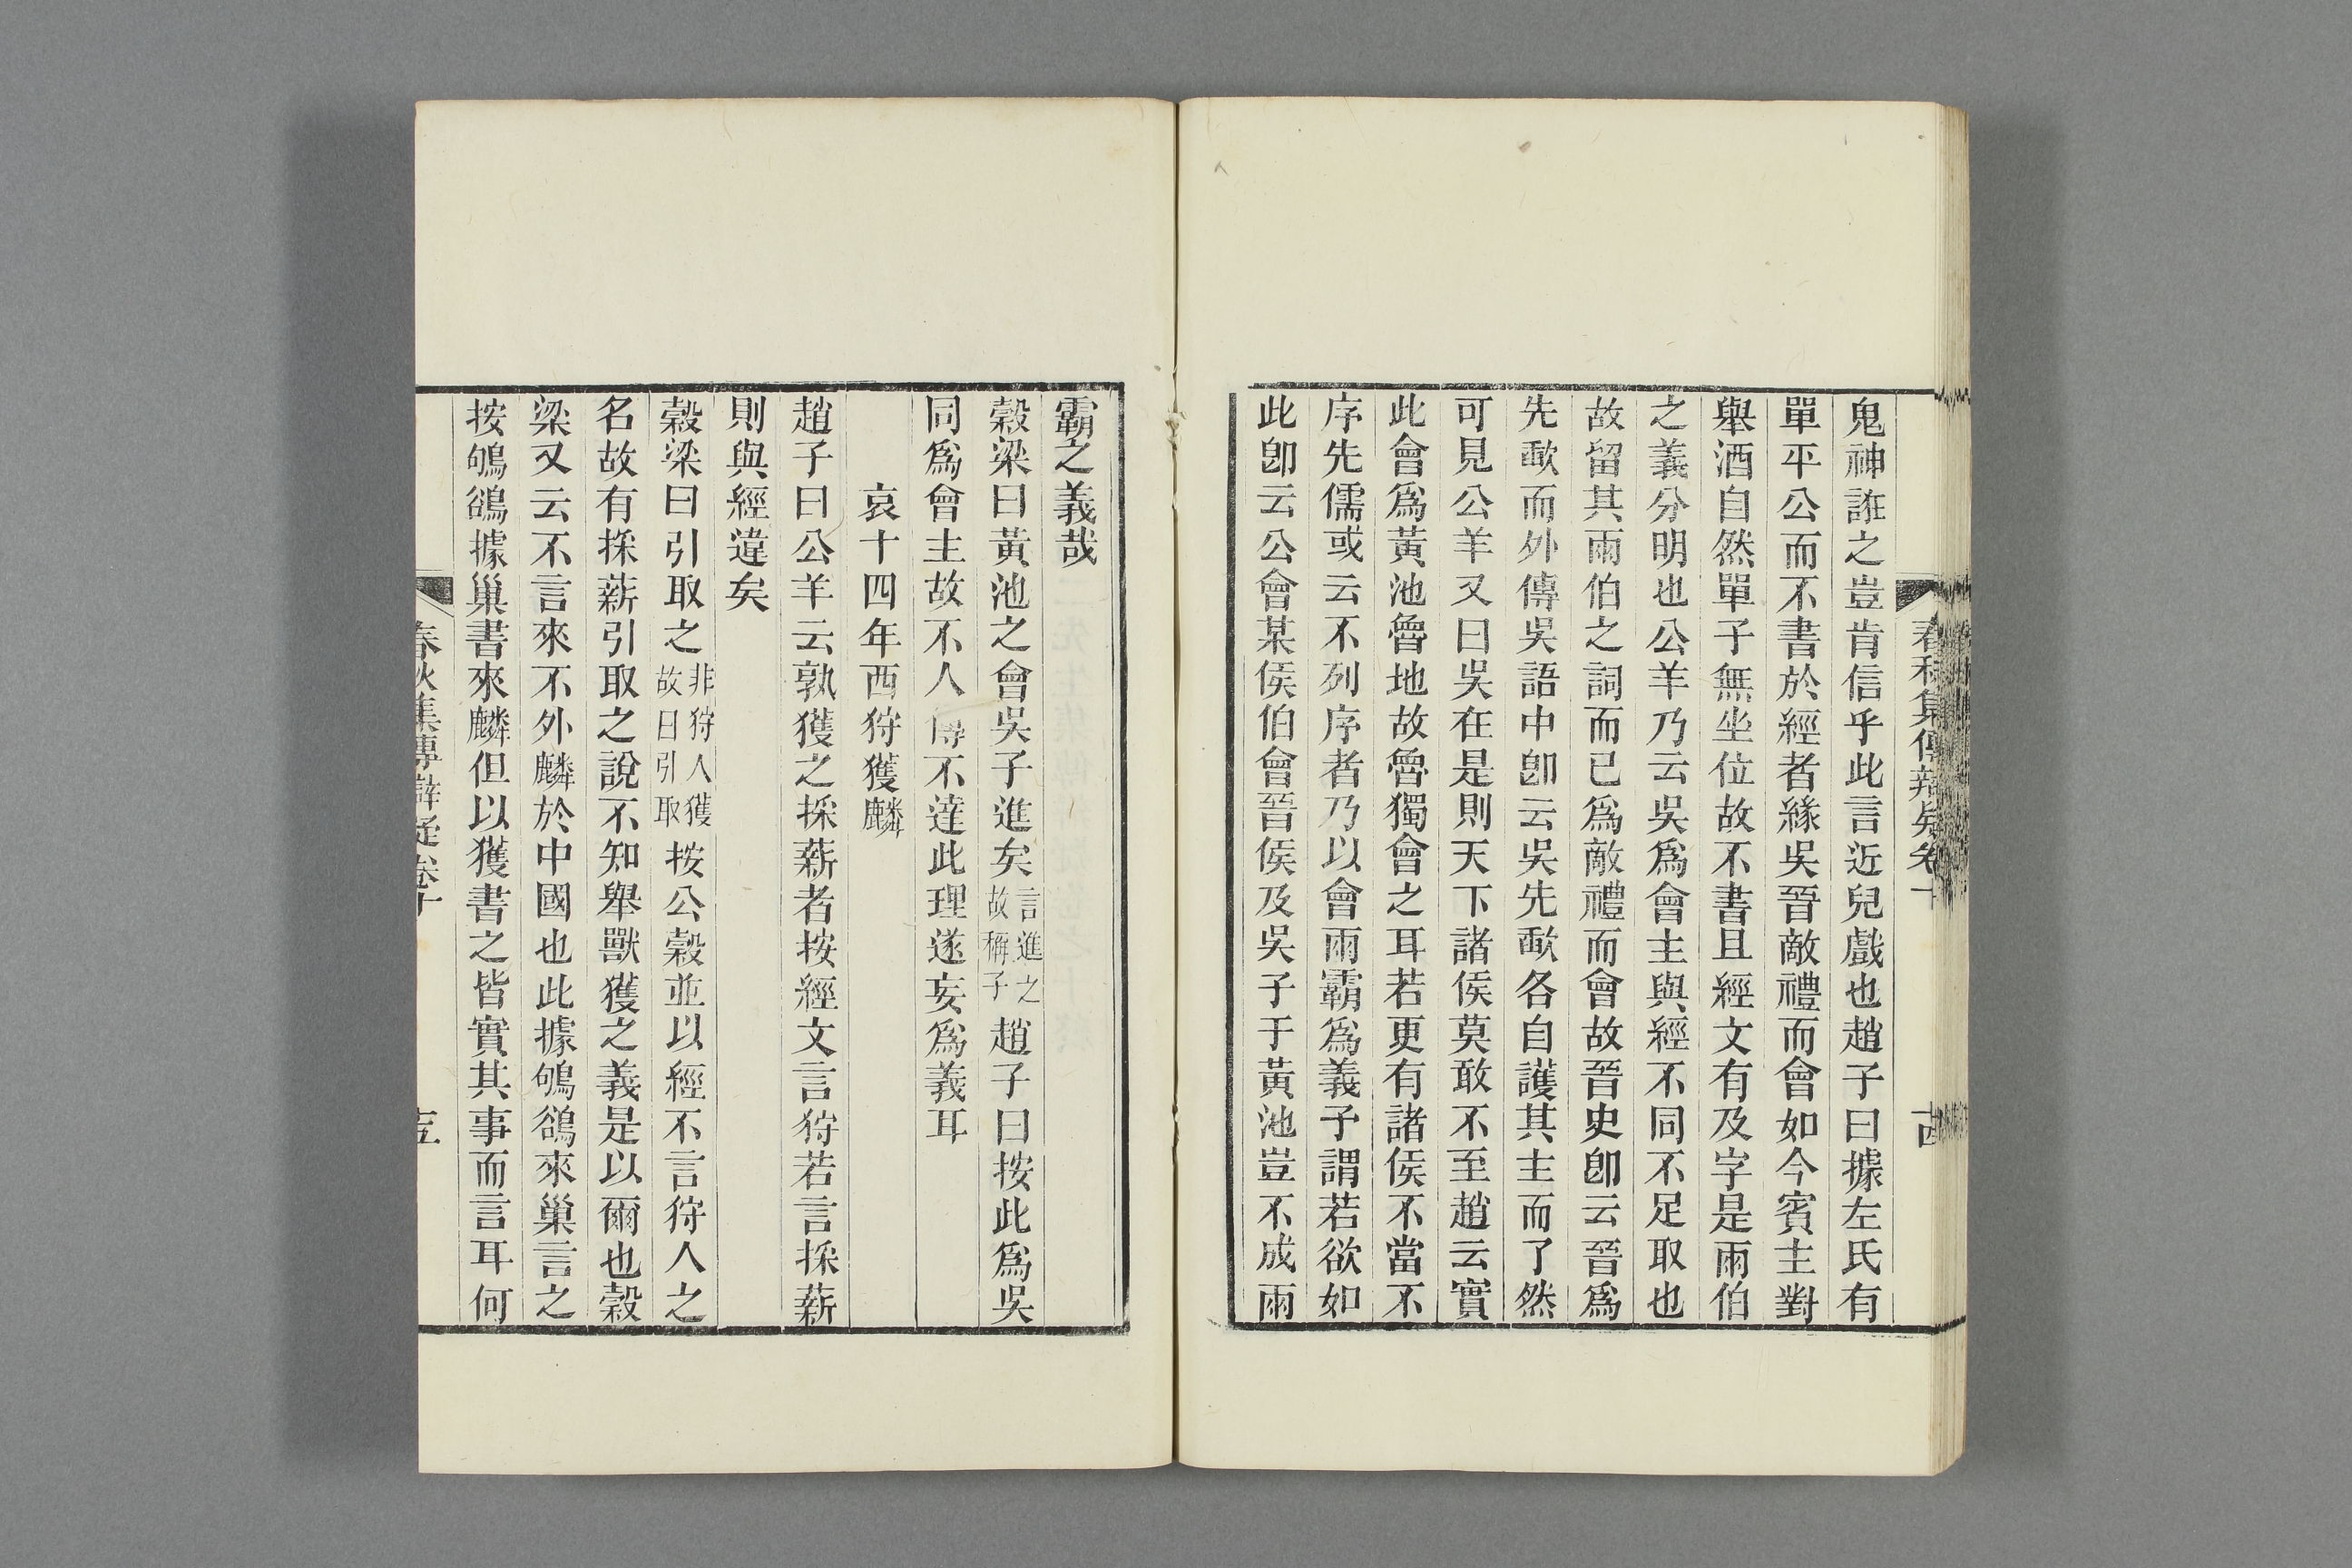 春秋集傳辯疑卷十
十四
鬼神誑之豈肯信乎此言近兒戲也趙子曰據左氏有
單平公而不書於經者緣吳晉敵禮而會如今賓主對
舉酒自然單子無坐位故不書且經文有及字是兩伯
之義分明也公羊乃云吳爲會主與經不同不足取也
故留其兩伯之詞而已爲敵禮而會故晉史卽云晉爲
先歃而外傳吳語中卽云吳先歃各自護其主而了然
可見公羊又曰吳在是則天下諸侯莫敢不至趙云實
此會爲黃池魯地故魯獨會之耳若更有諸侯不當不
序先儒或云不列序者乃以會兩霸爲義予謂若欲如
此卽云公會某侯伯會晉侯及吳子于黃池豈不成兩
霸之義哉
穀梁曰黃池之會吳子進矣言進之故稱子趙子曰按此爲吳
同爲會主故不人傳不達此理遂妄爲義耳
哀十四年西狩獲麟
趙子曰公羊云孰獲之採薪者按經文言狩若言採薪
則與經違矣
穀梁曰引取之非狩人獲故曰引取按公穀並以經不言狩人之
名故有採薪引取之說不知舉獸獲之義是以爾也穀
梁又云不言來不外麟於中國也此據鴝鵒來巢言之
按鴝鵒據巢書來麟但以獲書之皆實其事而言耳何
春秋集傳辯疑卷十
十五